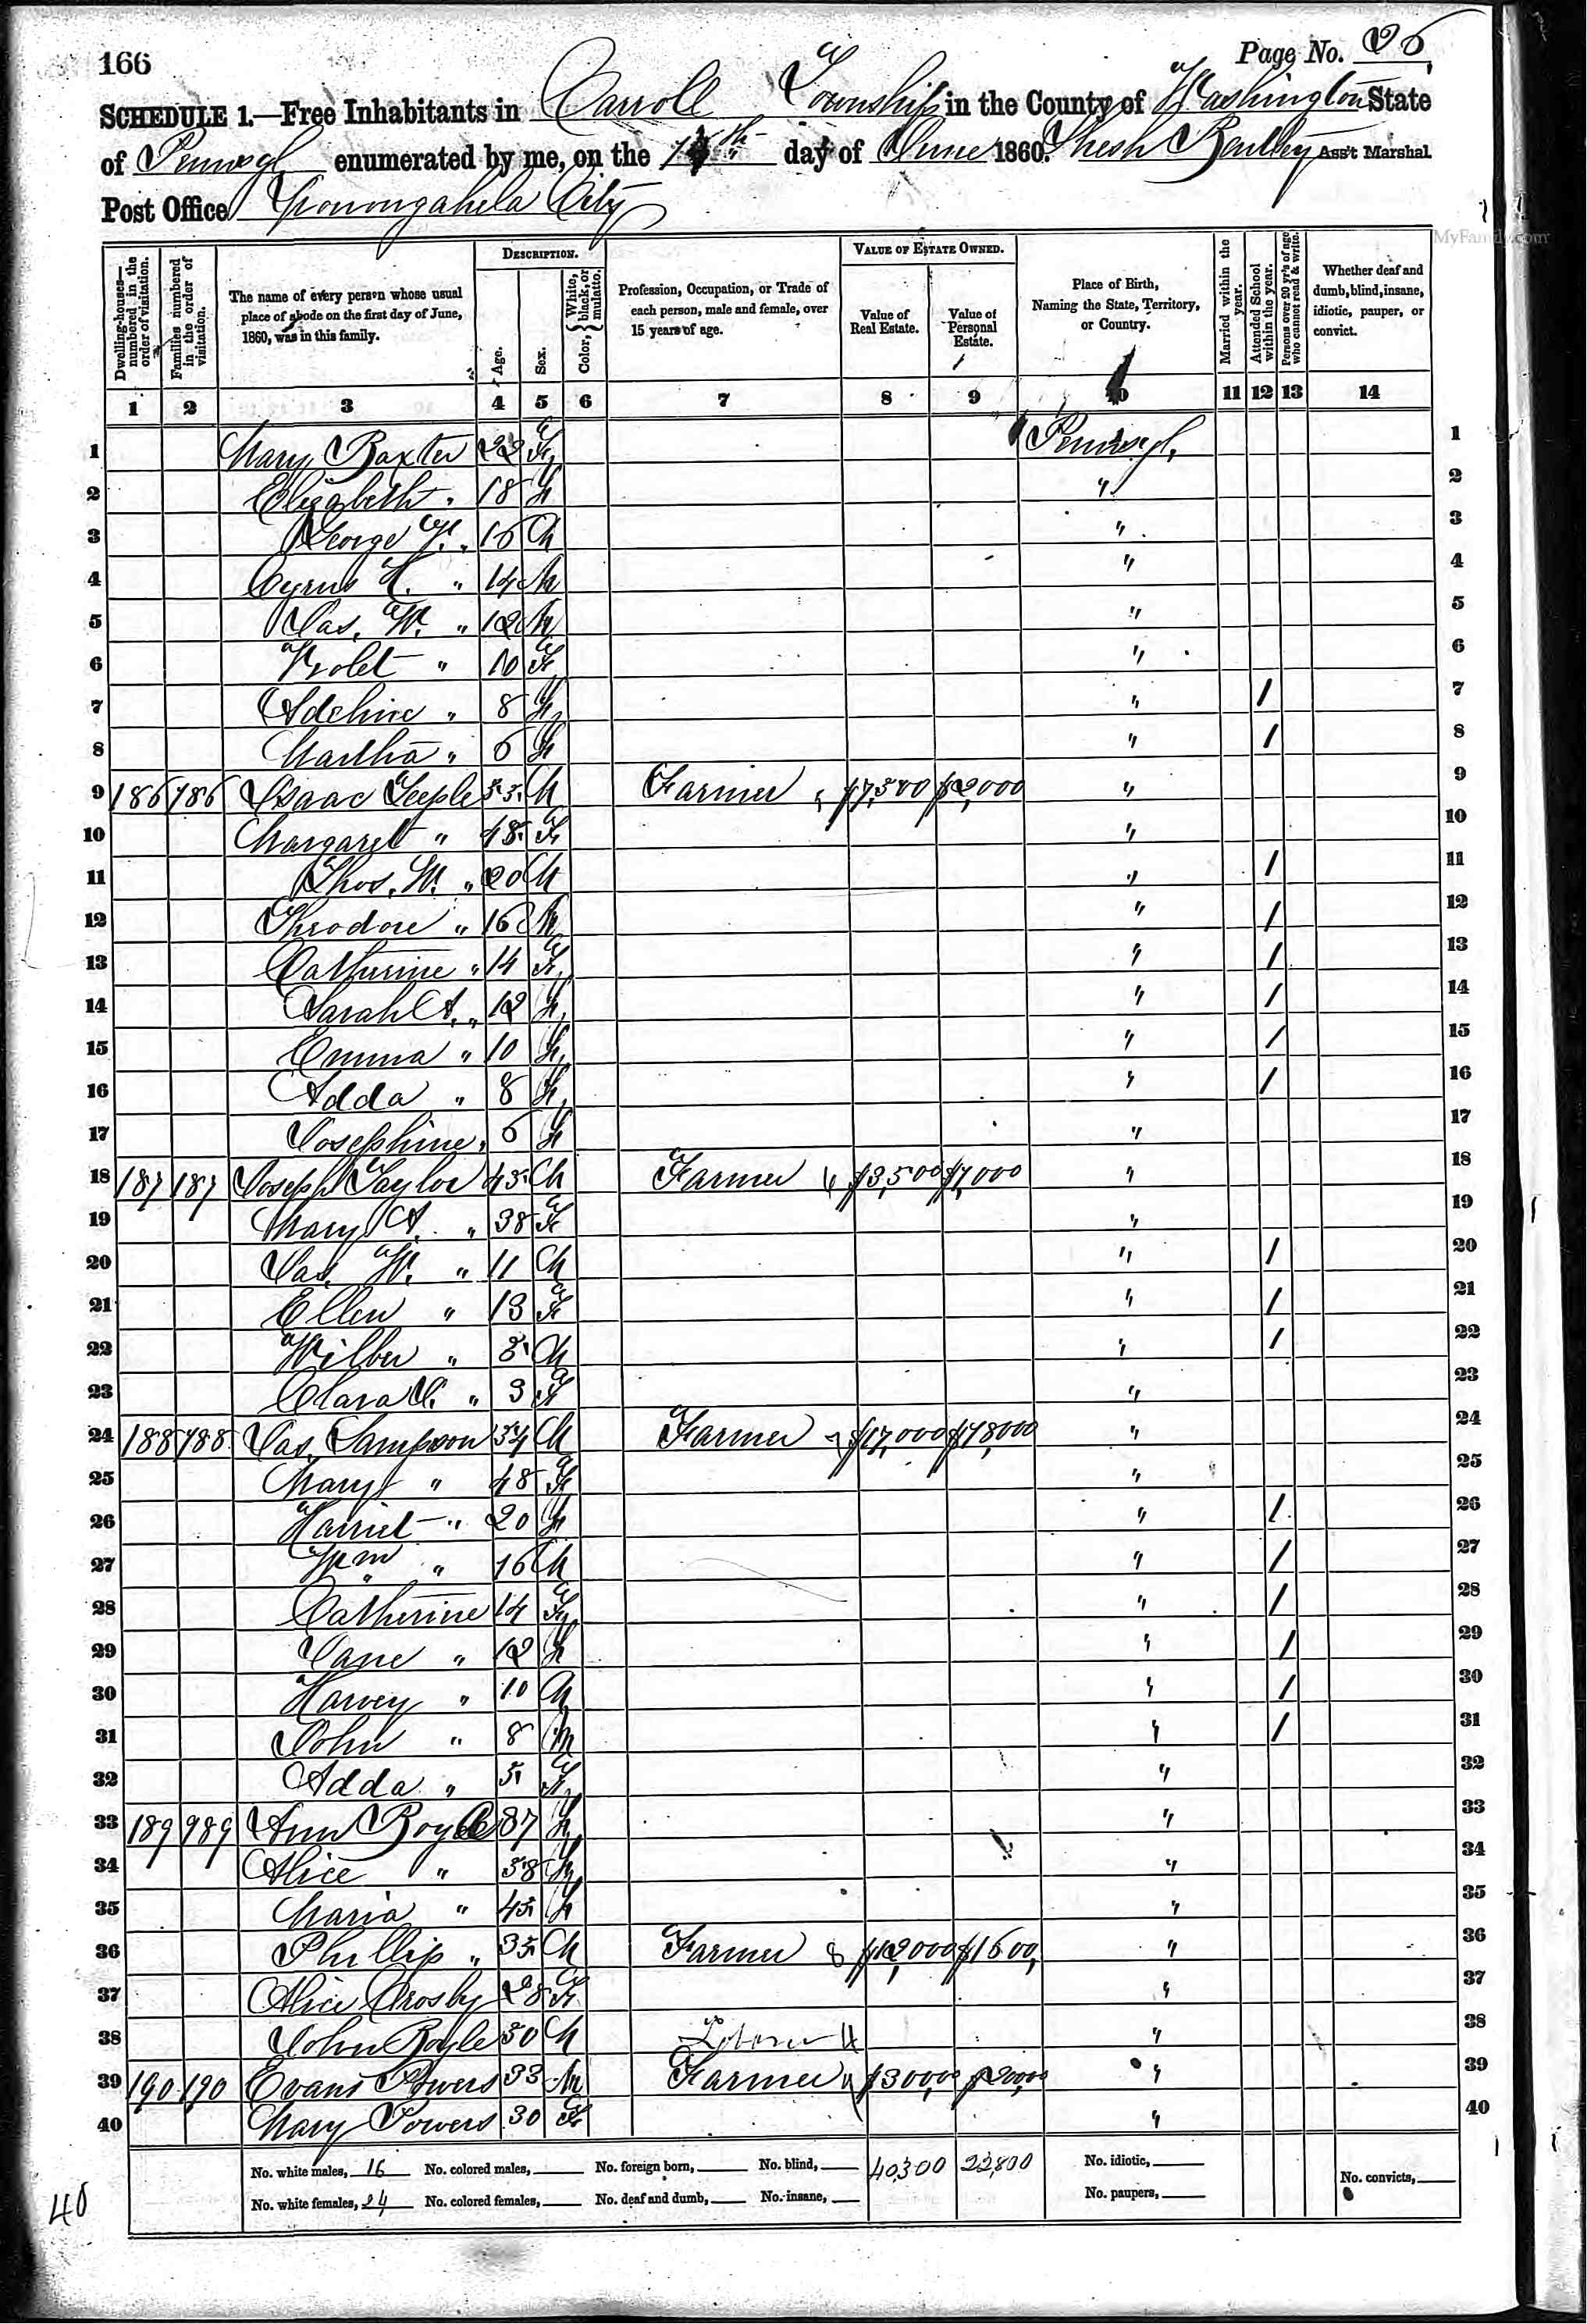 166
Page No. 26
SCHEDULE 1.—Free Inhabitants in Carroll Township in the County of Washington State
of Pennsyl enumerated by me, on the day of June 1860. Shesh Bentley Ass't Marshal
Post Office Monongahela City
MyFamily.com
Dwelling-houses—numbered in the order of visitation.
Families numbered in the order of visitation.
The name of every person whose usual place of abode on the first day of June, 1860, was in this family.
DESCRIPTION.
Age.
Sex.
Color, { White, black, or mulatto.
Profession, Occupation, or Trade of each person, male and female, over 15 years of age.
VALUE OF ESTATE OWNED.
Value of Real Estate.
Value of Personal Estate.
Place of Birth, Naming the State, Territory, or Country.
Married within the year.
Attended School within the year.
Persons over 20 yr's of age who cannot read & write.
Whether deaf and dumb, blind, insane, idiotic, pauper, or convict.
1 2 3 4 5 6 7 8 9 10 11 12 13 14
1 Mary Baxter 22 F Pennsyl, 1
2 Elizabeth " 18 F " 2
3 George W. " 16 M " 3
4 Cyrus H. " 14 M " 4
5 Jas. W. " 12 M " 5
6 Violet " 10 F " 6
7 Adeline " 8 F " / 7
8 Martha " 6 F " / 8
9 186 186 Isaac Teeple 53 M Farmer $7,500 $2,000 " 9
10 Margaret " 48 F " 10
11 Thos. W. " 20 M " / 11
12 Theodore " 16 M " / 12
13 Catherine " 14 F " / 13
14 Sarah A. " 12 F " / 14
15 Emma " 10 F " / 15
16 Adda " 8 F " / 16
17 Josephine " 6 F " 17
18 187 187 Joseph Taylor 45 M Farmer $3,500 $1,000 " 18
19 Mary A. " 38 F " 19
20 Jas. W. " 11 M " / 20
21 Ellen " 13 F " / 21
22 Wilber " 5 M " / 22
23 Clara J. " 3 F " 23
24 188 188 Jas. Sampson 54 M Farmer $17,000 $18,000 " 24
25 Mary " 48 F " 25
26 Harriet " 20 F " / 26
27 Wm " 16 M " / 27
28 Catherine 14 F " / 28
29 Jane " 12 F " / 29
30 Harvey " 10 M " / 30
31 John " 8 M " / 31
32 Adda " 5 F " 32
33 189 989 Ann Boyle 87 F " 33
34 Alice " 58 F " 34
35 Maria " 45 F " 35
36 Phillip " 35 M Farmer $12,000 $1600, " 36
37 Alice Crosby 28 F " 37
38 John Boyle 50 M Laborer " 38
39 190 190 Evans Powers 33 M Farmer $300,00 $200,00 " 39
40 Mary Powers 30 F " 40
No. white males, 16 No. colored males, No. foreign born, No. blind, 40,300 22,800 No. idiotic, No. convicts,
No. white females, 24 No. colored females, No. deaf and dumb, No. insane, No. paupers,
40